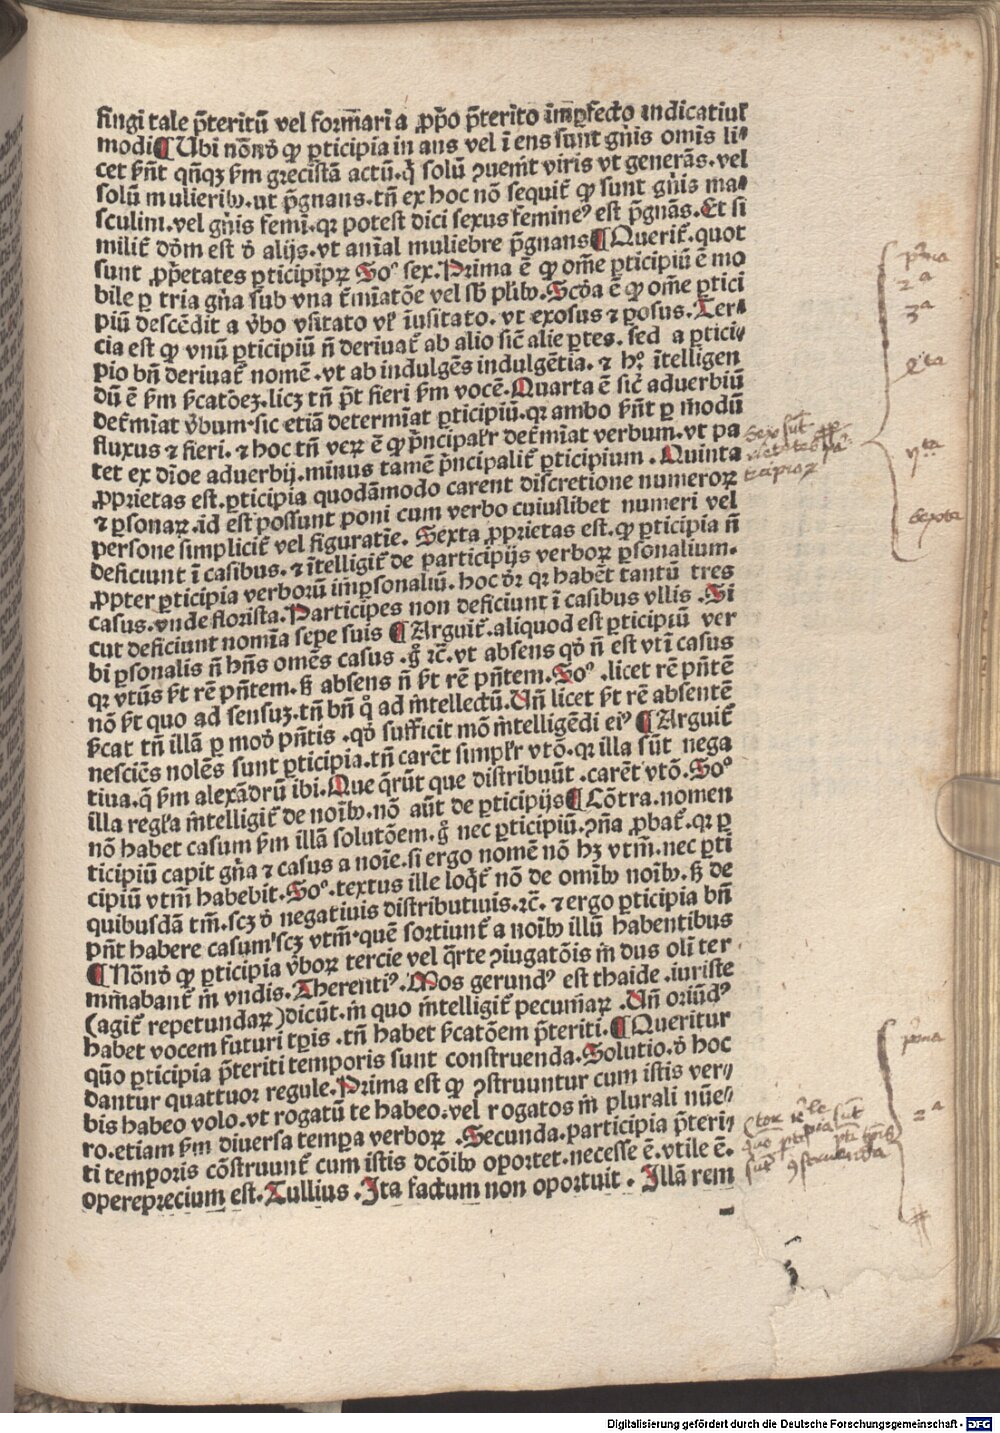 fingi tale p̃teritũ vel form̃ari a ꝓp̃o p̃terito im̃ꝑfecto indicatiui
modi¶Ubi nõnd̃ ꝙ ꝑticipia in ans vel ĩ ens sunt gñis omĩs li⸗
cet s̃nt qñqꝫ s̃m grecistã actũ.q̃ solũ ꝯuenĩt viris vt generãs.vel
solũ mulierib̃.ut p̃gnans.tñ ex hoc nõ sequit̃ ꝙ sunt gñis ma⸗
sculini.vel gñis femi.qꝛ potest dici sexus femineꝰ est p̃gnãs.Et si
milit̃ dõm est d̃ alijs.vt anĩal muliebre p̃gnans¶Querit̃.quot
sunt ꝓp̃etates ꝑticipioꝝ Soº sex.Prima ẽ ꝙ om̃e ꝑticipiũ ẽ mo
bile ꝑ tria gña sub vna t̃miatõe vel sb̃ plĩb.Scda ẽ ꝙ om̃e ꝑtici
piũ descẽdit a v̓bo vsitato vl̓ ĩusitato. vt exosus ⁊ ꝑosus.Ter⸗
cia est ꝙ vnũ ꝑticipiũ ñ deriuat̃ ab alio sic̃ alie ꝑtes. sed a ꝑtici⸗
pio bñ deriuat̃ nomẽ .vt ab indulgẽs indulgẽtia. ⁊ hº. ĩtelligen
dũ ẽ s̃m s̃catõeꝫ.licꝫ tñ p̃t fieri s̃m vocẽ.Quarta ẽ sic̃ aduerbiũ
det̃miat v̓bum.sic etiã determĩat ꝑticipiũ.qꝛ ambo s̃nt ꝑ modũ
fluxus ⁊ fieri. ⁊ hoc tñ veꝝ ẽ ꝙ p̃ncipalr̃ det̃miat verbum.vt pa
tet ex dĩoe aduerbij.minus tamẽ p̃ncipalit̃ ꝑticipium .Quinta
ꝓprietas est.ꝑticipia quodãmodo carent discretione numeroꝝ
⁊ ꝑsonaꝝ.id est possunt poni cum verbo cuiuslibet numeri vel
persone simplicit̃ vel figuratie. Sexta ꝓprietas est.ꝙ ꝑticipia ñ
deficiunt ĩ casibus. ⁊ ĩtelligit̃ de participijs verboꝝ ꝑsonalium.
ꝓpter ꝑticipia verborũ imꝑsonaliũ. hoc dr̃ qꝛ habẽt tantũ tres
casus.vnde florista.Participes non deficiunt ĩ casibus vllis .Si
cut deficiunt nomĩa sepe suis ¶Arguit̃.aliquod est ꝑticipiũ ver
bi ꝑsonalis ñ hñs omẽs casus .g̊ ⁊c̃.vt absens qd̃ ñ est vti casus
qꝛ vtũs s̃t rẽ pñtem.ß absens ñ s̃t rẽ pñtem.Soº .licet rẽ pñtẽ
nõ s̃t quo ad sensuꝫ.tñ bñ q̊ ad ĩntellectũ.Uñ licet s̃t rẽ absentẽ
s̃cat tñ illã ꝑ mod̃ pñtis .qd̃ sufficit mõ ĩntelligẽdi eiꝰ ¶Arguit̃
nesciẽs nolẽs sunt ꝑticipia.tñ carẽt simplr̃ vtõ.qꝛ illa sũt nega
tiua.q̃ s̃m alexãdrũ ibi.Que q̃rũt que distribuũt .carẽt vtõ.Soº
illa regl̃a ĩntelligit̃ de noĩb.nõ aũt de ꝑticipijs¶Cõtra.nomen
nõ habet casum s̃m illã solutõem.g̊ nec ꝑticipiũ.ꝯña ꝓbat̃.qꝛ ꝑ
ticipiũ capit gña ⁊ casus a noĩe.si ergo nomẽ nõ hꝫ vtm̃.nec ꝑti
cipiũ vtm̃ habebit.Soº.textus ille loq̃t̃ nõ de omĩb noĩb.ß de
quibusdã tm̃.scꝫ d̃ negatiuis distributiuis.⁊c̃. ⁊ ergo ꝑticipia bñ
pñt habere casum scꝫ vtm̃.quẽ sortiunt̃ a noĩb illũ habentibus
¶Nõnd̃ ꝙ ꝑticipia v̓boꝝ tercie vel q̃rte ꝯiugatõis in dus oli ter
minabant̃ in vndis.Therentiꝰ.Mos gerundꝰ est thaide .iuriste
(agit̃ repetundaꝝ)dicũt.in quo ĩntelligit̃ pecuniaꝝ .Uñ oriũdꝰ
habet vocem futuri tp̃is .tñ habet s̃catõem p̃teriti.¶Queritur
qũo ꝑticipia p̃teriti temporis sunt construenda.Solutio.d̃ hoc
dantur quattuor regule.Prima est ꝙ ꝯstruuntur cum istis ver⸗
bis habeo volo.vt rogatũ te habeo.vel rogatos in plurali nũe⸗
ro.etiam s̃m diuersa tempa verboꝝ .Secunda.participia p̃teri⸗
ti temporis cõstruunt̃ cum istis dcõib oportet.necesse ẽ.vtile ẽ.
opereprecium est.Tullius.Ita factum non oportuit . Illã rem
pr̃ma
2ª
3ª
4ta
Sexe sũt ꝓp
rietates pa
rticipioꝝ
5ta
Sexta
pr̃ma
2ª
Digitalisierung gefördert durch die Deutsche Forschungsgemeinschaft - DFG